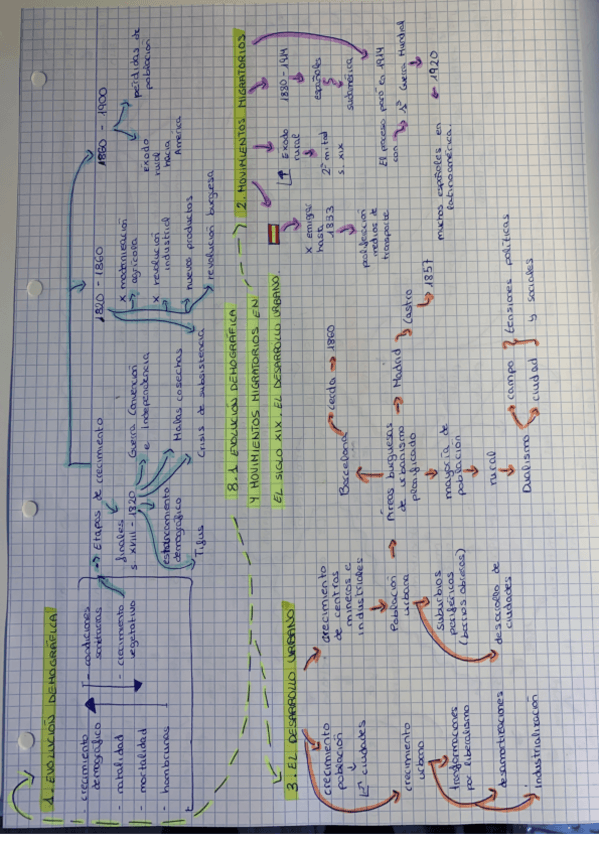 1. EVOLUCIÓN DEMOGRÁFICA
- crecimiento
demográfico
- natalidad
- mortalidad
- hambrunas
- condiciones
sanitarias
- crecimiento
vegetativo
Etapas de crecimiento
finales
s. XVIII - 1820
Guerra Convención
e Independencia
estancamiento
demográfico
Malas cosechas
Tifus
Crisis de subsistencia
1820 - 1860
x modernización
agrícola
x revolución
industrial
nuevos productos
revolución burguesa
1860 - 1900
éxodo
rural
hacia
América
pérdidas de
población
8.1 EVOLUCIÓN DEMOGRÁFICA
Y MOVIMIENTOS MIGRATORIOS EN
EL SIGLO XIX. EL DESARROLLO URBANO
2. MOVIMIENTOS MIGRATORIOS
x emigró
hasta
1833
proliferación
medios de
transporte
↑ Éxodo
rural
2ª mitad
s. XIX
1880 - 1914
españoles
sudamérica
El proceso paró en 1914
con 1ª Guerra Mundial
1920
muchos españoles en
latinoamérica.
3. EL DESARROLLO URBANO
crecimiento
población
ciudades
crecimiento
urbano
transformaciones
por liberalismo
desamortizaciones
industrialización
crecimiento
de centros
mineros e
industriales
Población
urbana
suburbios
periféricos
(barrios obreros)
desarrollo de
ciudades
Áreas burguesas
de urbanismo
planificado
Barcelona
Cerdá → 1860
Madrid
Castro
1857
mayoría de
población
rural
Dualismo
campo
ciudad
tensiones políticas
y sociales